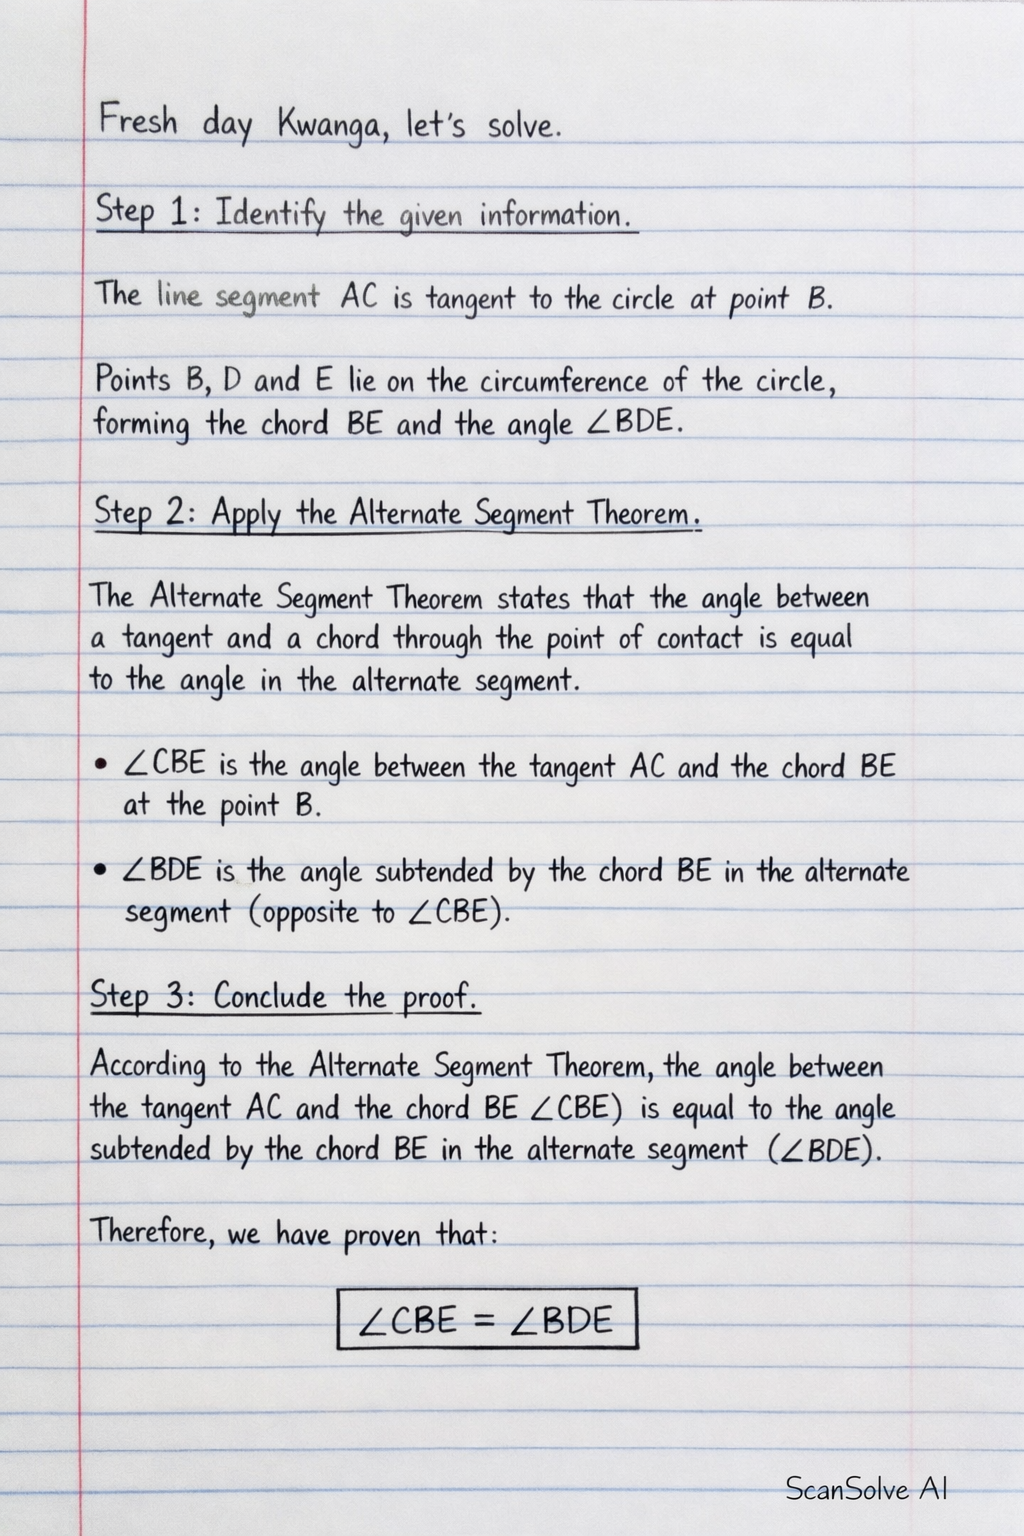 Fresh day Kwanga, let's solve.
Step 1: Identify the given information.
The line segment AC is tangent to the circle at point B.
Points B, D and E lie on the circumference of the circle,
forming the chord BE and the angle ∠BDE.
Step 2: Apply the Alternate Segment Theorem.
The Alternate Segment Theorem states that the angle between
a tangent and a chord through the point of contact is equal
to the angle in the alternate segment.
• ∠CBE is the angle between the tangent AC and the chord BE
at the point B.
• ∠BDE is the angle subtended by the chord BE in the alternate
segment (opposite to ∠CBE).
Step 3: Conclude the proof.
According to the Alternate Segment Theorem, the angle between
the tangent AC and the chord BE ∠CBE) is equal to the angle
subtended by the chord BE in the alternate segment (∠BDE).
Therefore, we have proven that:
∠CBE = ∠BDE
ScanSolve AI